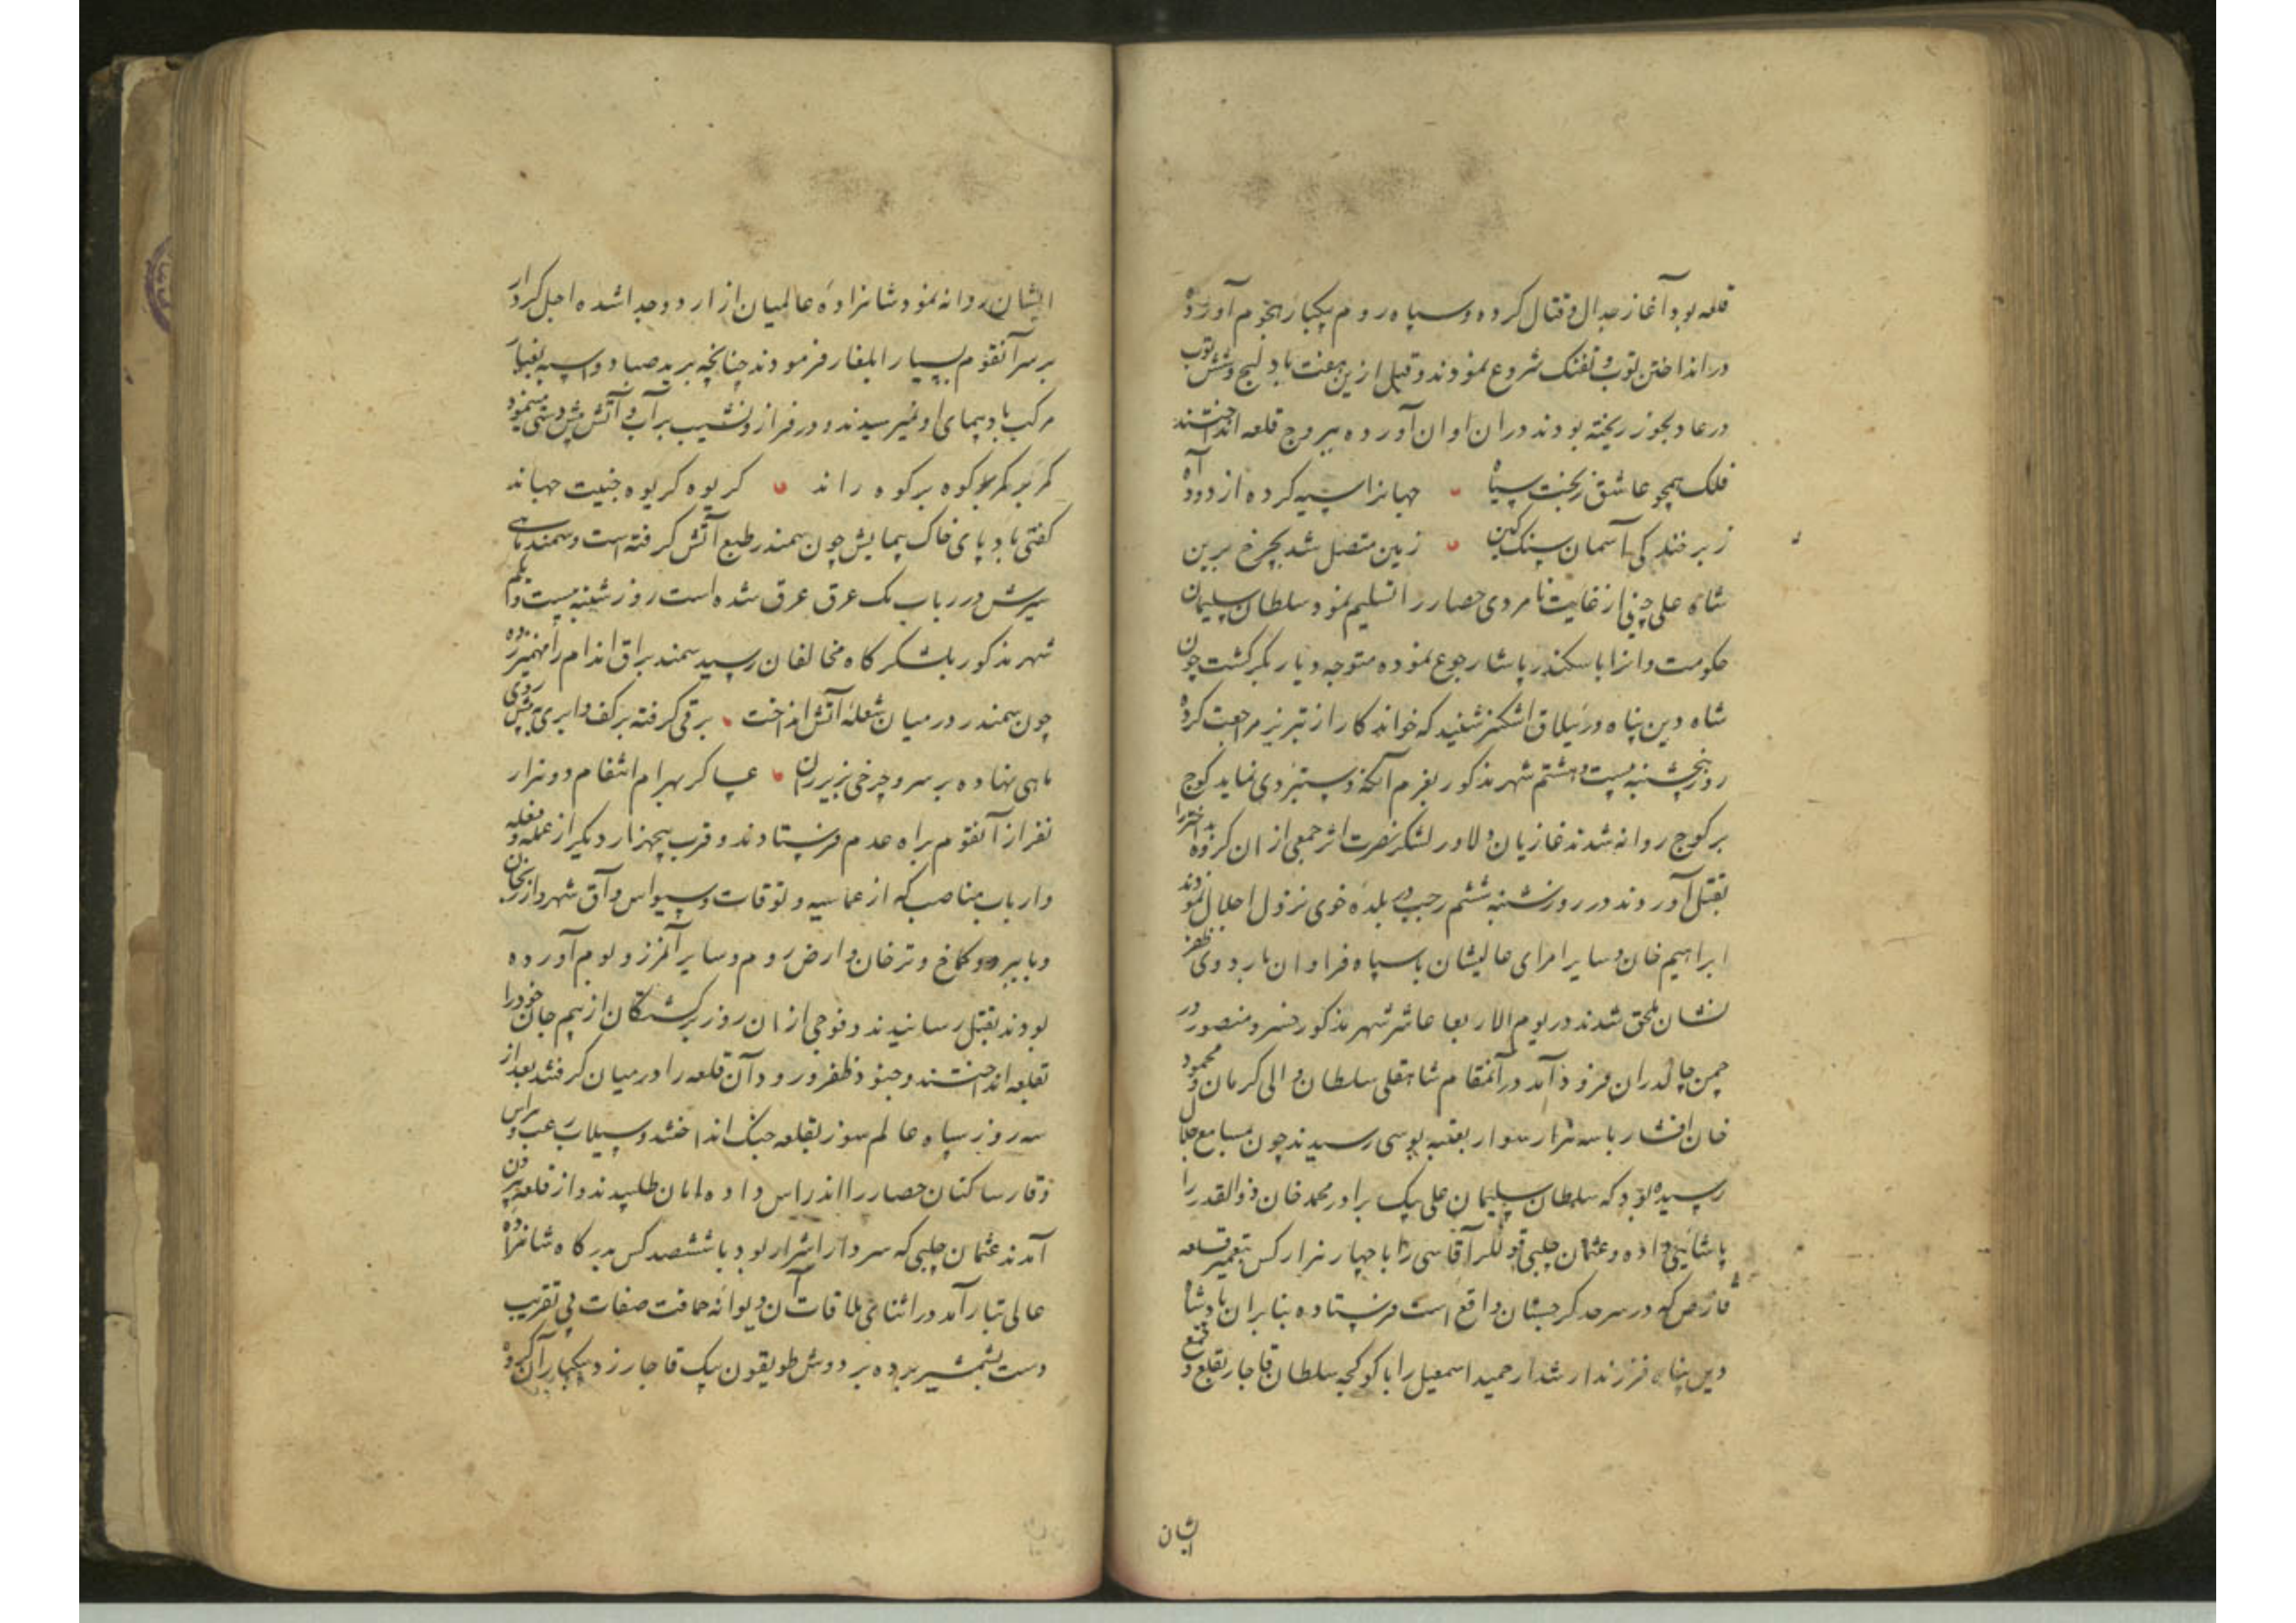 قلعه بود آغاز جدال و قتال کرده و سپاه روم بیکبار هجوم آورده
در انداختن توپ و تفنگ شروع نمودند و قبل ازین هفت بادلیج و شش توپ
در عادلجوز ریخته بودند دران اوان آورده ببروج قلعه انداختند
فلک همچو عاشق ز بخت سیاه جهانرا سیه کرده از دود آه
ز بر فندکی آسمان سنک کین زمین متصل شد بچرخ برین
شاه علی چپنی از غایت نامردی حصار را تسلیم نمود سلطان سلیمان
حکومت وانرا باسکندر پاشا رجوع نموده متوجه دیار بکر کشت چون
شاه دین پناه در ییلاق اشکنبر شنید که خواندکار از تبریز مراجعت کرده
روز پنجشنبه بیست و هشتم شهر مذکور بعزم آنکه دستبردی نماید کوچ
بر کوچ روانه شدند غازیان دلاور لشکر نصرت اثر جمعی از ان کروه بداختر را
بقتل آوردند در روز شنبه ششم رجب در بلده خوی نزول اجلال نمودند
ابراهیم خان و سایر امرای عالیشان با سپاه فراوان باردوی ظفر
نشان ملحق شدند در یوم الاربعا عاشر شهر مذکور خسرو منصور در
چمن چالدران فرود آمد در آنمقام شاهقلی سلطان والی کرمان و محمود
خان افشار با سه هزار سوار بعتبه بوسی رسیدند چون مسامع جلال
رسیده بود که سلطان سلیمان علی بیک برادر محمد خان ذوالقدر را
پاشائی داده و عثمان چلبی قوللر آقاسی را با چهار هزار کس بتعمیر قلعه
قارص که در سرحد کرجستان واقع است فرستاده بنابران پادشاه
دین پناه فرزند ارشد ارجمند اسمعیل را با کوکجه سلطان قاجار بقلع و قمع
ایشان
ایشان روانه نمود شاهزاده عالمیان از اردو جدا شده اجل کردار
بر سر آنقوم بسیار ایلغار فرمودند چنانچه برید صبا و اسپه بغبار
مرکب بادپیمای او نمیرسیدند و در فراز و نشیب بر آب و آتش پیش دستی مینمود
کمر بر کمر کوه بر کوه راند کریوه کریوه جنیبت جهاند
کفتی باد پای خاک پیمایش چون سمندر طبع آتش کرفته است و سمند ماهی
سیرش در رباب یک عرق عرق شده است روز شنبه بیست و یکم
شهر مذکور بلشکر کاه مخالفان رسید سمند براق اندام را مهمیز زده
چون سمندر در میان شعله آتش انداخت برقی کرفته بر کف و ابری به پیش روی
ماهی نهاده بر سر و چرخی بزیر ران عساکر بهرام انتقام دو هزار
نفر از آنقوم براه عدم فرستادند و قرب پنجهزار دیکر از عمله و فعله
و ارباب مناصب که از عماسیه و توقات و سیواس و آق شهر و ازرنجان
و بایبرد و کماخ و ترخان و ارض روم و سایر آنمرز و بوم آورده
بودند بقتل رسانیدند و فوجی از ان روز برکشتکان از بیم جان خود را
بقلعه انداختند و جنود ظفر ورود آن قلعه را در میان کرفتند بعد از
سه روز سپاه عالم سوز بقلعه جنک انداختند و سیلاب رعب و هراس
وقار ساکنان حصار را اندراس داده امان طلبیدند و از قلعه بیرون
آمدند عثمان چلبی که سردار اشرار بود با ششصد کس بدرکاه شاهزاده
عالی تبار آمد در اثنای ملاقات آن دیوانه حماقت صفات بی تقریب
دست بشمشیر برده بر دوش طویقون بیک قاجار زد بیکبار آن کروه